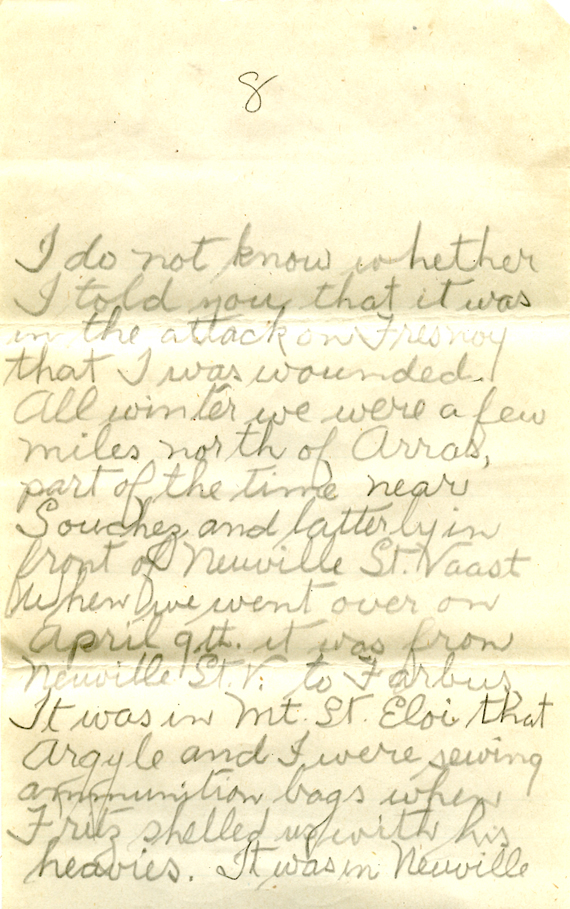 8
I do not know whether
I told you that it was
in the attack on Fresnoy
that I was wounded.
All winter we were a few
miles north of Arras,
part of the time near
Souchez and latterly in
front of Neuville St. Vaast
When we went over on
April 9th. it was from
Neuville St. V. to Farbus,
It was in Mt. St. Eloi that
Argyle and I were sewing
ammunition bags when
Fritz shelled us with his
heavies. It was in Neuville